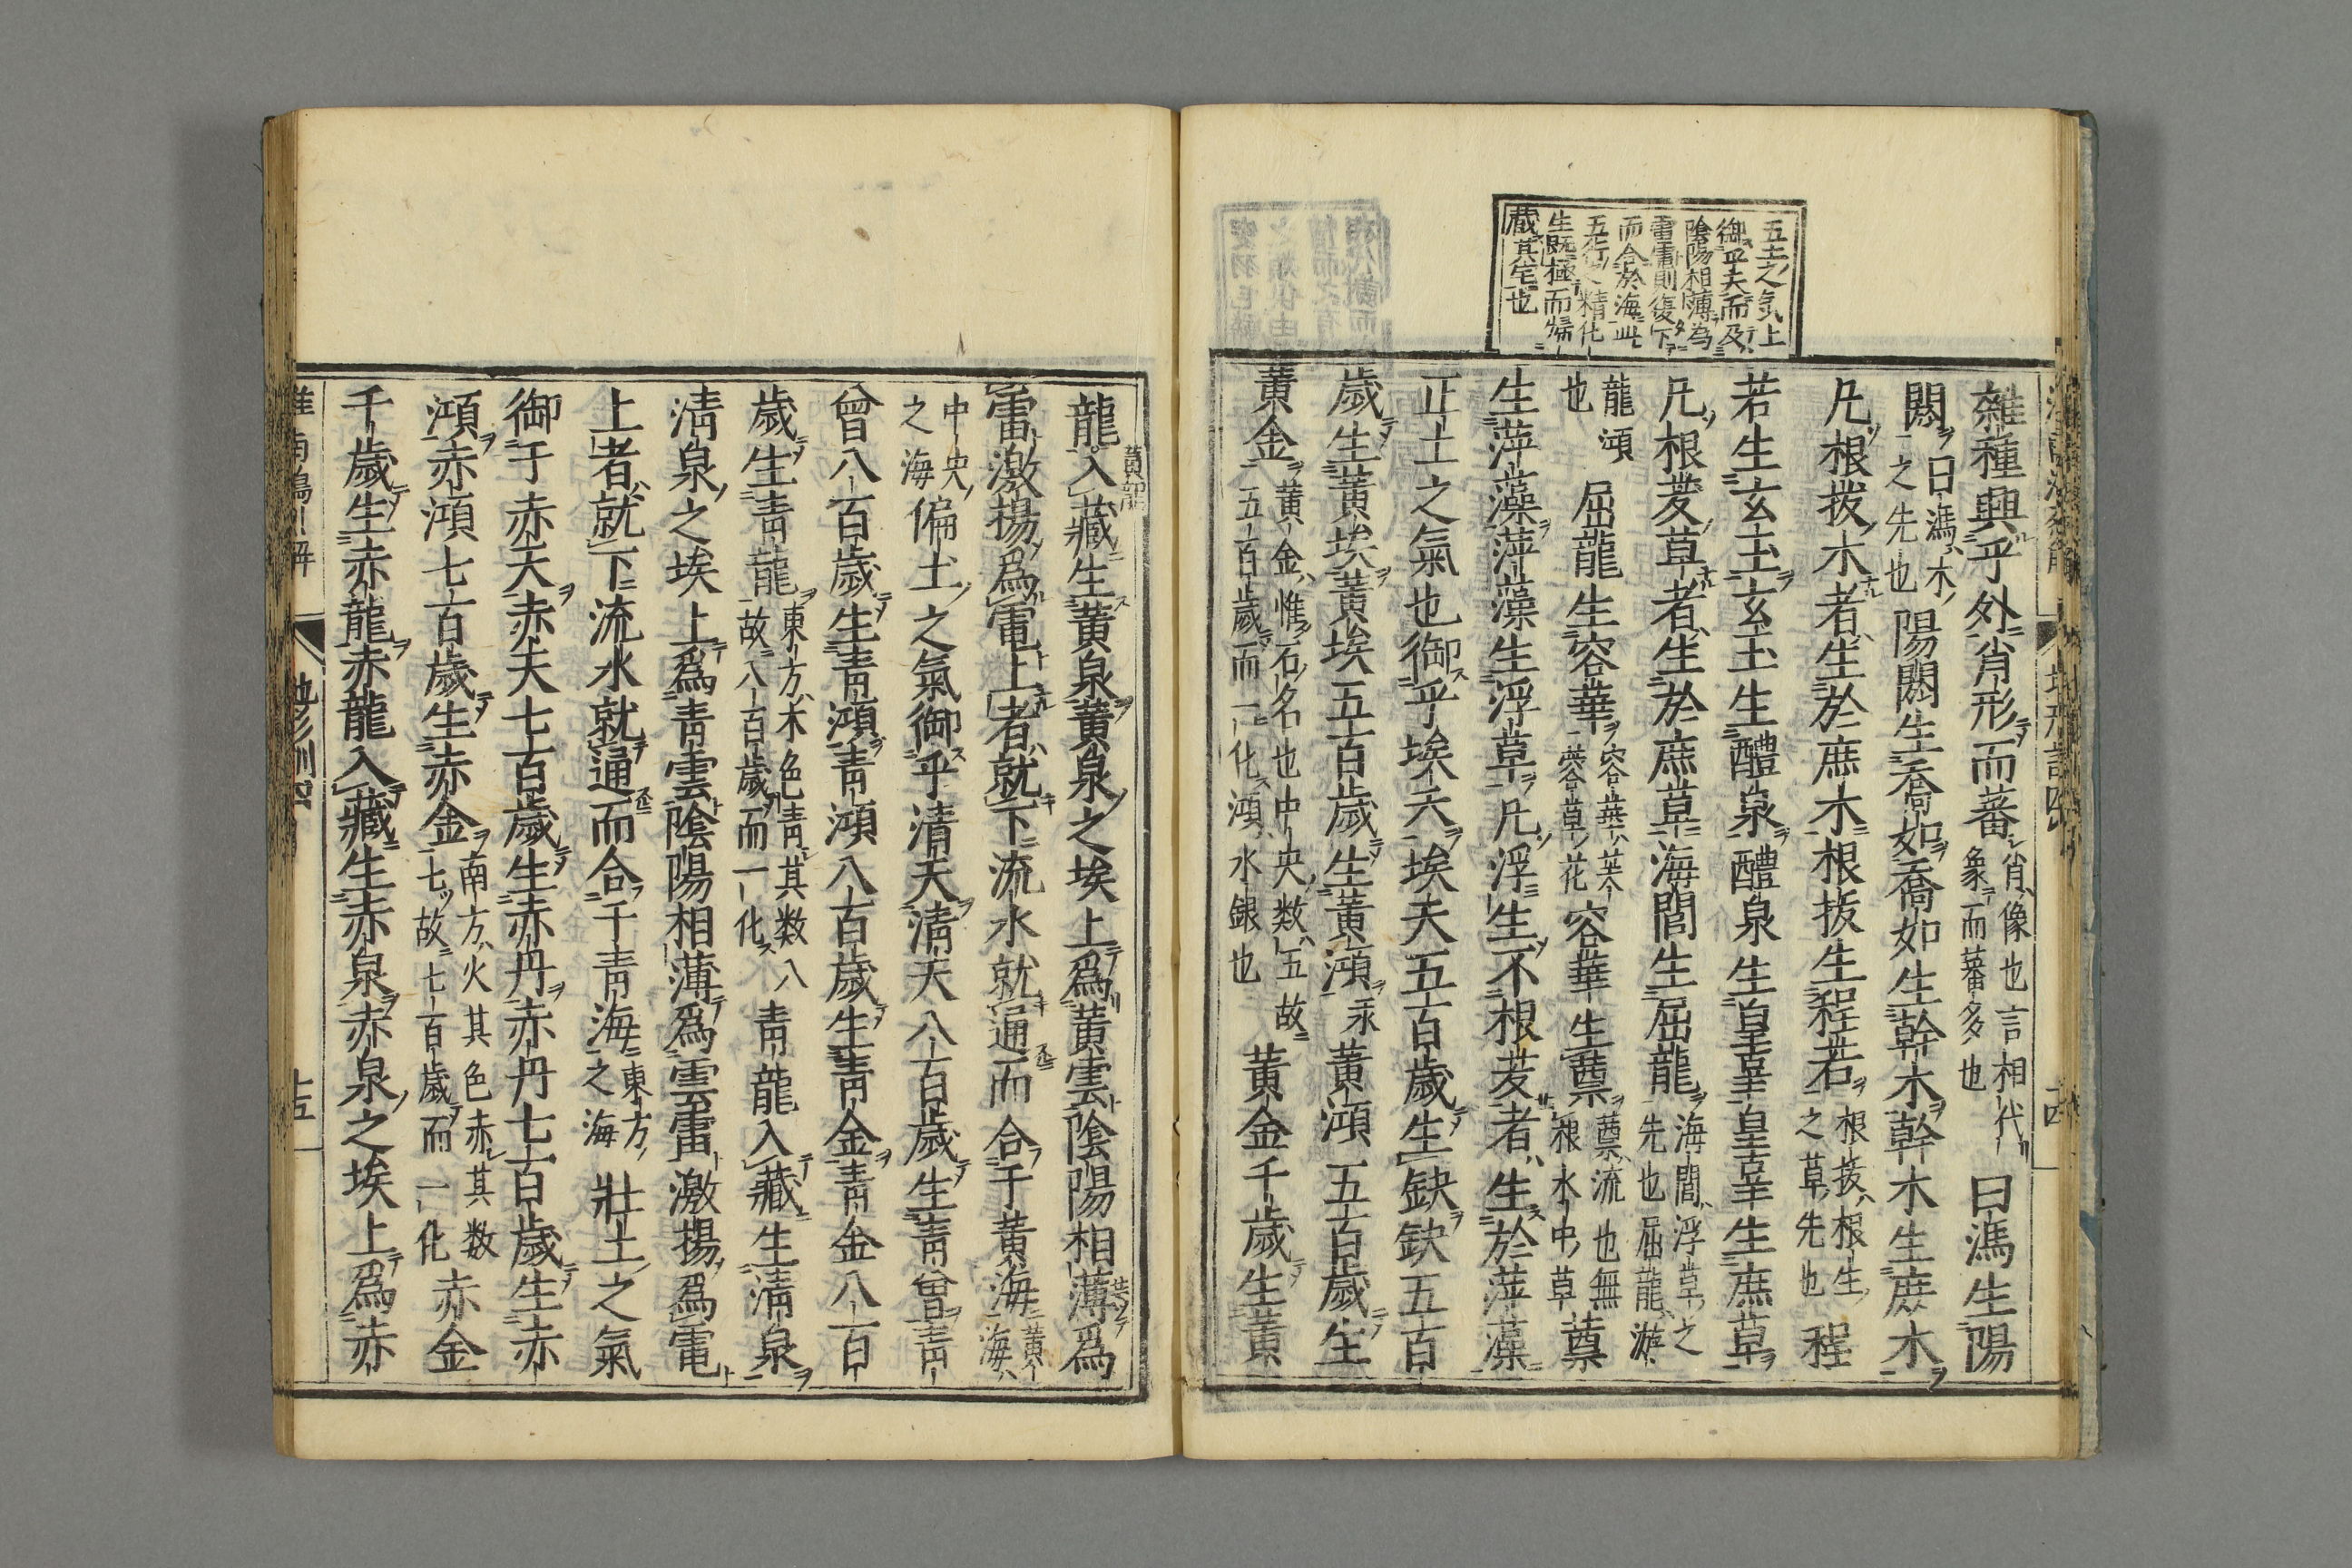 五土之氣上
御乎天而及
陰陽相薄為
雷電則復下
而合於海此
五行之精化
生既極而歸
藏其宅也
雜種興乎外肖形而蕃肖像也言相代象而蕃多也日馮生陽
閼日馮木之先也陽閼生喬如喬如生幹木幹木生庶木
凡根拔木者生於庶木根拔生程若根拔根生之草先也程
若生玄玉玄玉生醴泉醴泉生皇辜皇辜生庶草
凡根茇草者生於庶草海閭生屈龍海閭浮草之先也屈龍游
龍澒也屈龍生容華容華芙蓉草花容華生蔈蔈流也無根水中草蔈
生萍藻萍藻生浮草凡浮生不根茇者生於萍藻
正土之氣也御乎埃天埃天五百歲生缺缺五百
歲生黃埃黃埃五百歲生黃澒汞黃澒五百歲生
黃金黃金惟石名也中央数五故五百歲而一化澒水銀也黃金千歲生黃
龍入藏生黃泉黃泉之埃上為黃雲陰陽相薄爲
雷激揚爲電上者就下流水就通而合于黃海黃海
中央之海偏土之氣御乎清天清天八百歲生青曾青
曾八百歲生青澒青澒八百歲生青金青金八百
歲生青龍東方木色青其数八故八百歲而一化青龍入藏生清泉
清泉之埃上爲青雲陰陽相薄爲雲雷激揚爲電
上者就下流水就通而合于青海東方之海壯土之氣
御于赤天赤天七百歲生赤丹赤丹七百歲生赤
澒赤澒七百歲生赤金南方火其色赤其数七故七百歲而一化赤金
千歲生赤龍赤龍入藏生赤泉赤泉之埃上爲赤